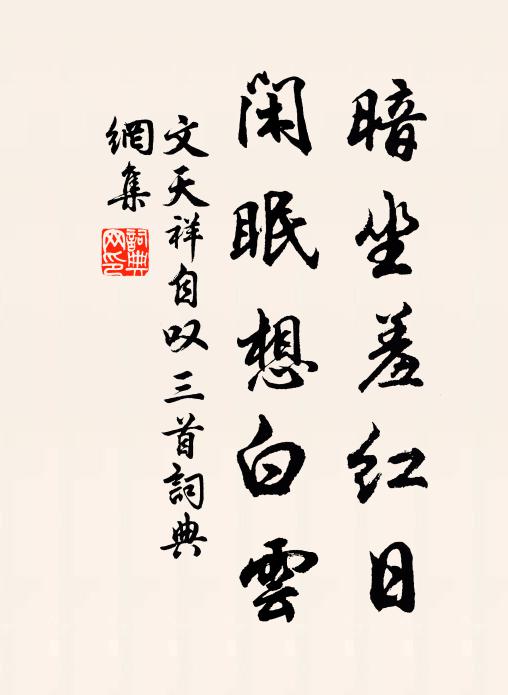 暗坐羞红日
闲眠想白雲
文天祥自叹三首詞典
網集
詞典网印